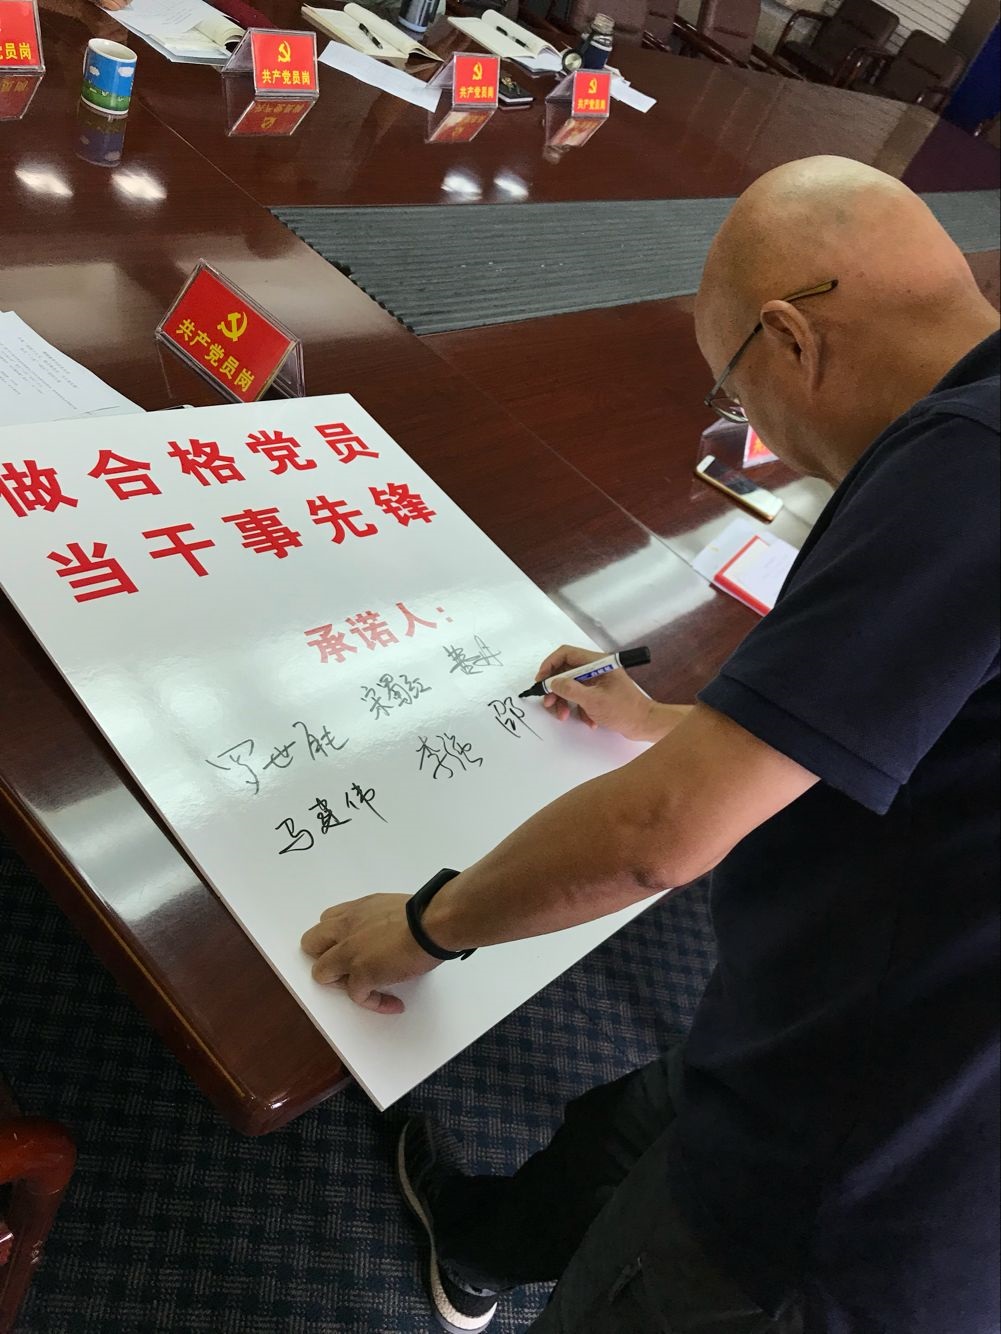 共产党员岗
共产党员岗
共产党员岗
党员岗
共产党员岗
做合格党员
当干事先锋
承诺人：
罗世胜 宋蜀红
马建伟 李强 邵